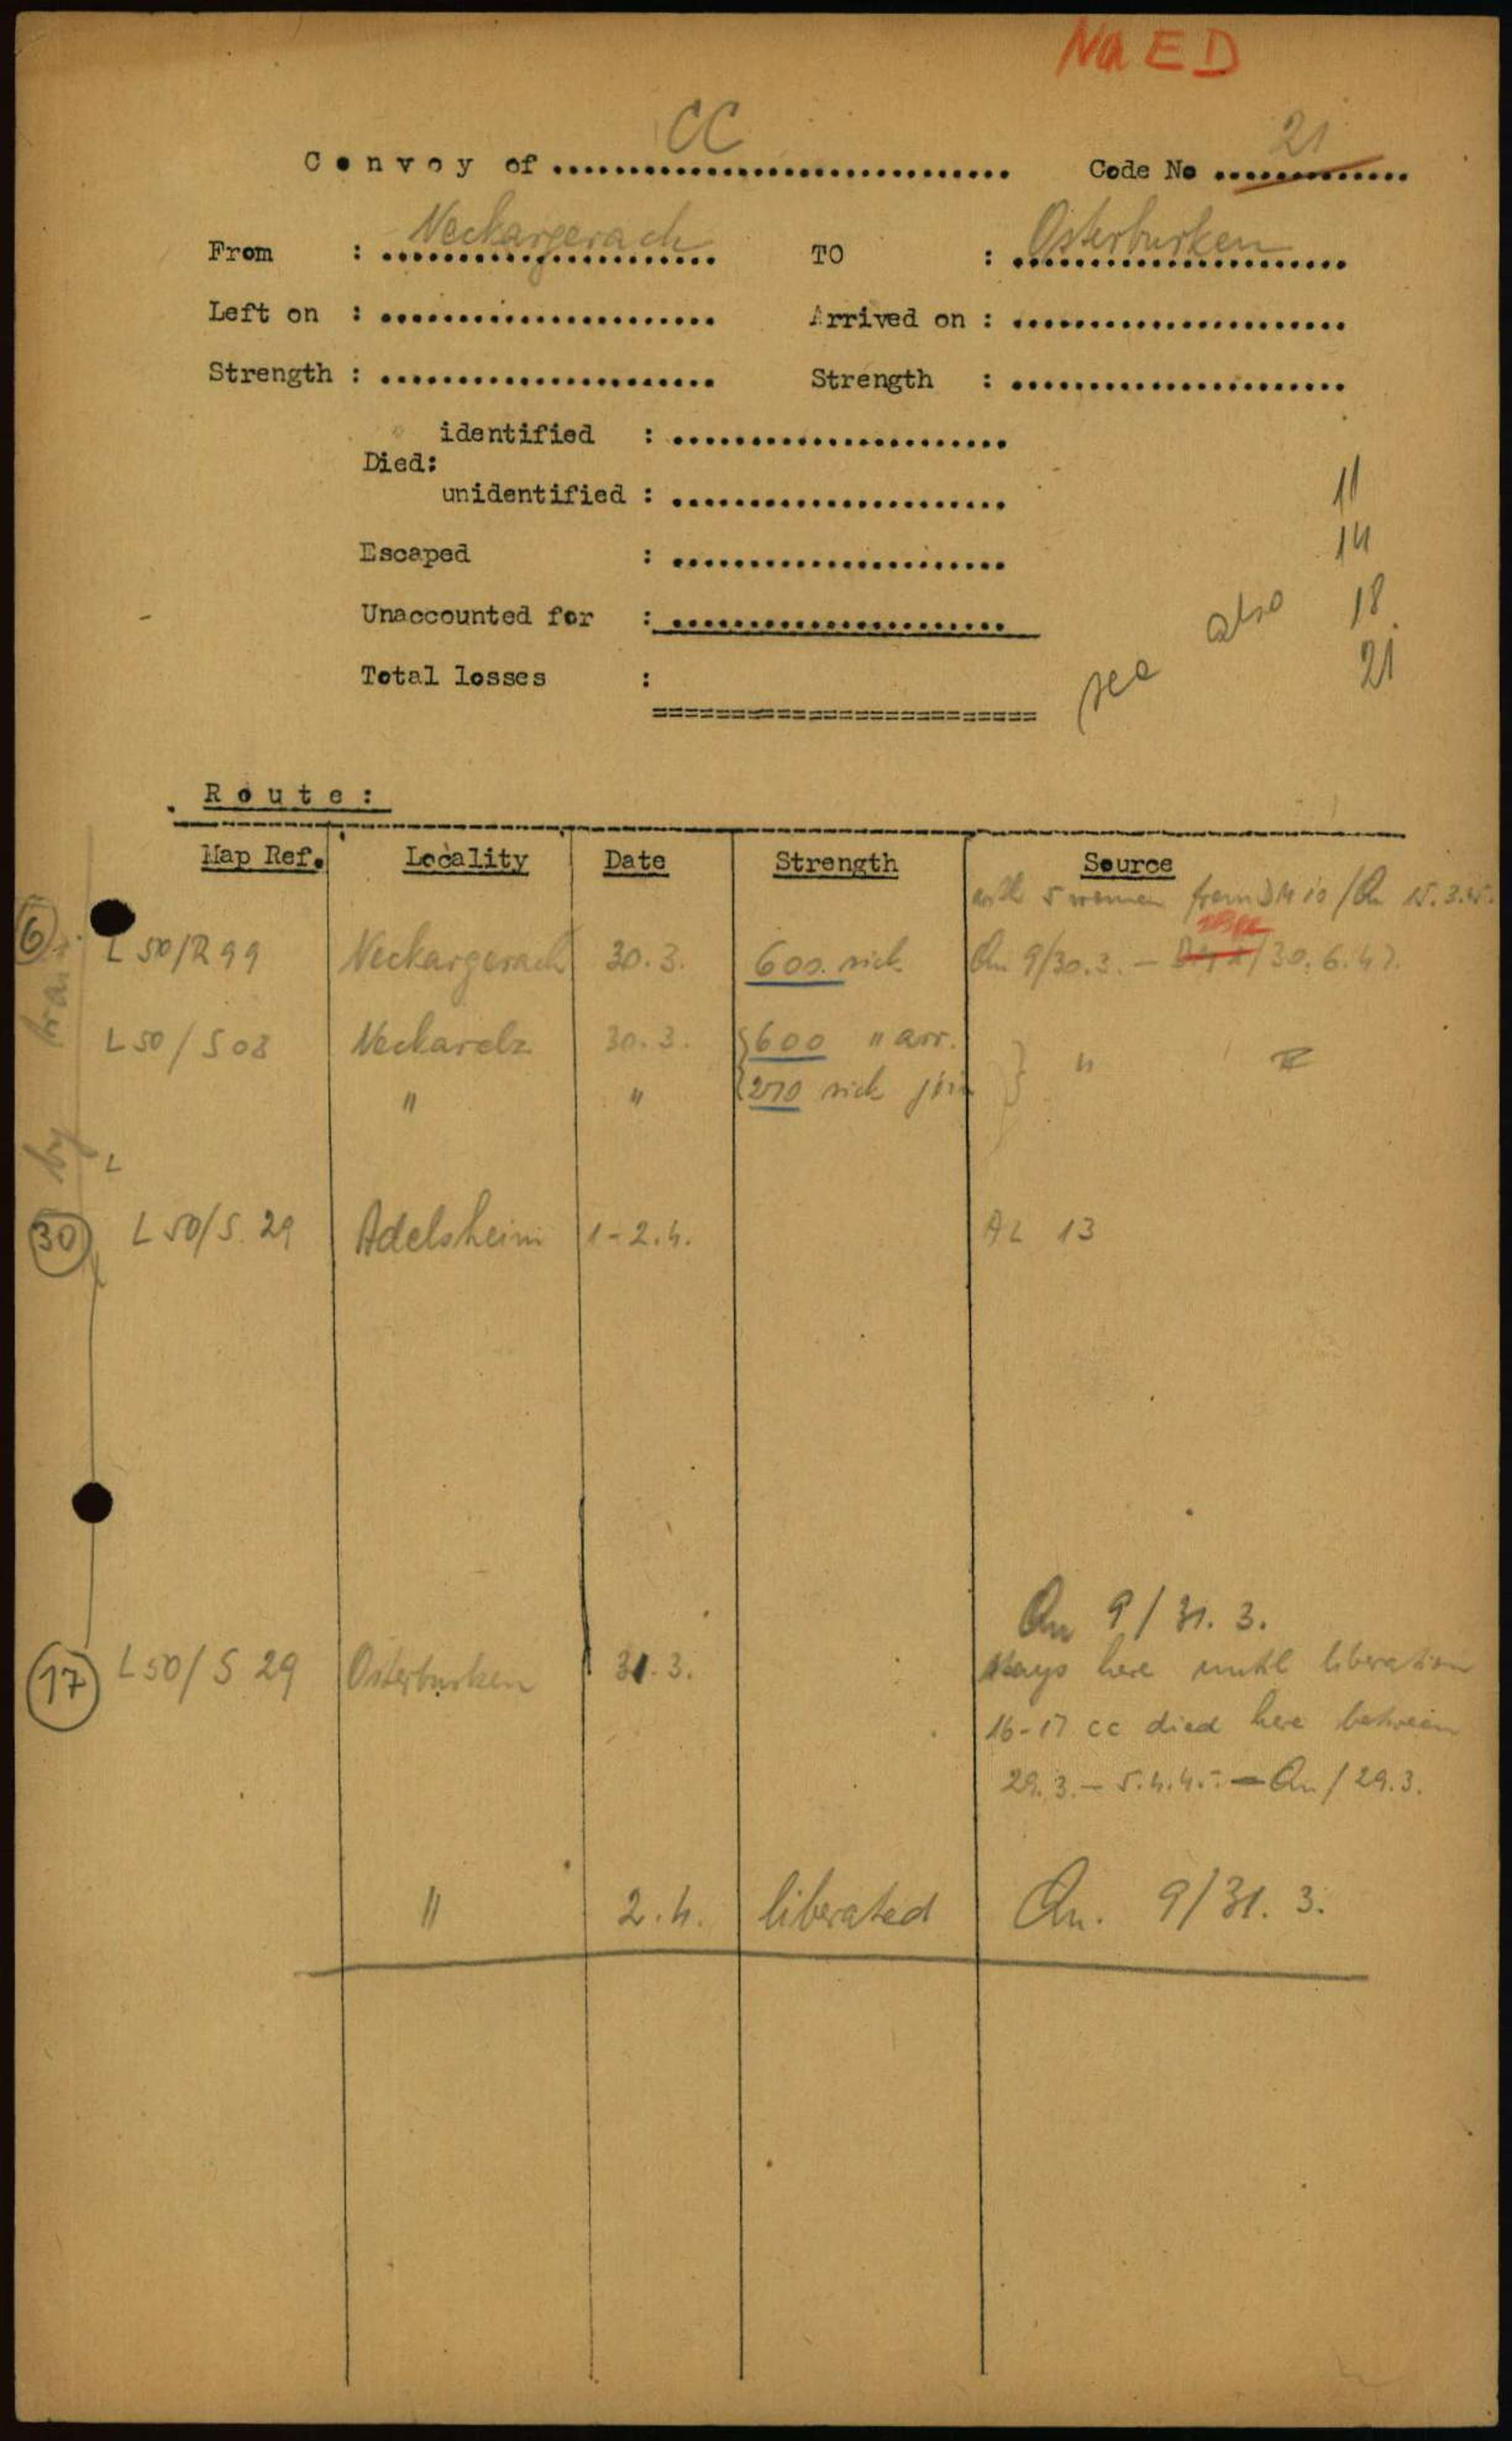 Na E D
CC
Convoy of ..............................
21
Code No .............
From : Neckargerach
TO : Osterburken
Left on : ......................
Arrived on : ......................
Strength : ......................
Strength : ......................
identified : ......................
Died:
unidentified : ......................
Escaped : ......................
Unaccounted for : ......................
Total losses :
see also
11
14
18
21
Route:
Map Ref. Locality Date Strength Source
5 women from / On 15.3.45.
6 L 50/R 99 Neckargerach 30.3. 600 sick On 9/30.3. — /30.6.47.
L 50/S 08 Neckarelz 30.3. 600 " arr. "
" " 270 sick join
by train
L
30 L 50/S. 29 Adelsheim 1-2.4. AL 13
On 9/31.3.
17 L 50/S 29 Osterburken 31.3. stays here until liberation
16-17 cc died here between
29.3. — 5.4.45. — On / 29.3.
" 2.4. liberated On. 9/31.3.